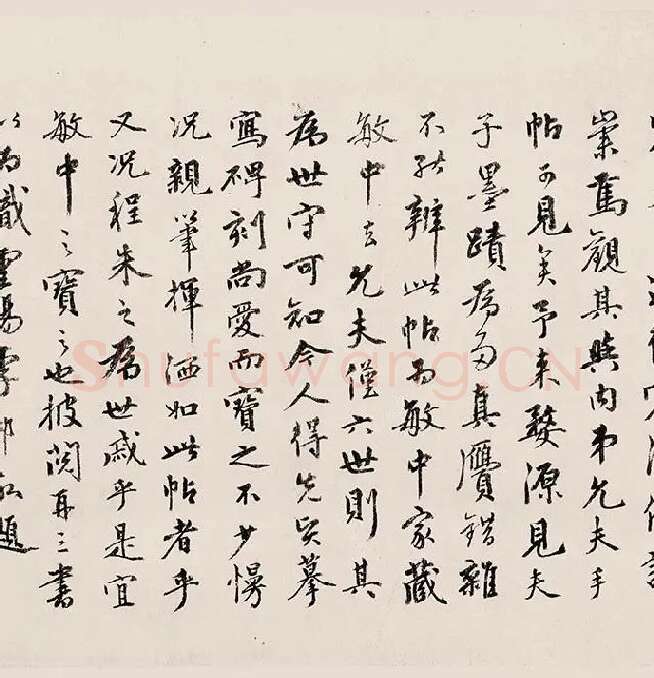 崇篤觀其與内弟允夫手
帖可見矣予來婺源見夫
子墨蹟為多真贗錯雜
不能辨此帖為敏中家藏
敏中去允夫僅六世則其
為世守可知今人得先賢摹
寫碑刻尚愛而寶之不少慢
況親筆揮洒如此帖者乎
又況程朱之為世戚乎是宜
敏中之寶之也披閱再三書
以為識題
Shufawang.CN